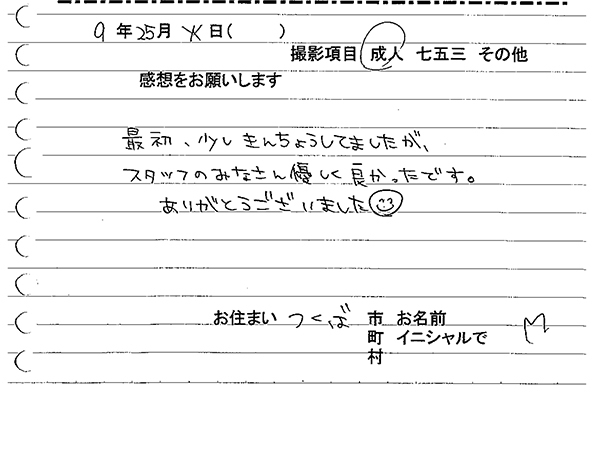 9年25月火日(　　)
撮影項目 成人 七五三 その他
感想をお願いします
最初、少しきんちょうしてましたが、
スタッフのみなさん優しく良かったです。
ありがとうございました
お住まい つくば 市 お名前
町 イニシャルで M
村